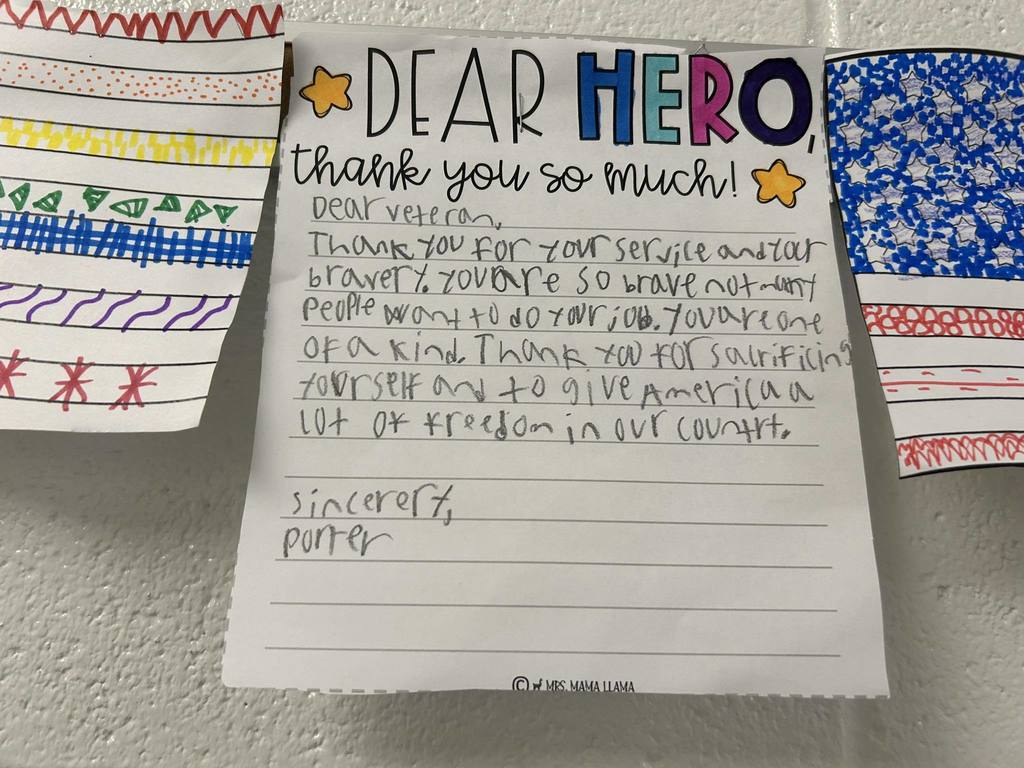 DEAR HERO,
thank you so much!
Dear veteran,
Thank you for your service and your
bravery. You are so brave not many
people want to do your job. You are one
of a kind. Thank you for sacrificing
yourself and to give America a
lot of freedom in our country.
sincerery,
porter
© MRS. MAMA LLAMA